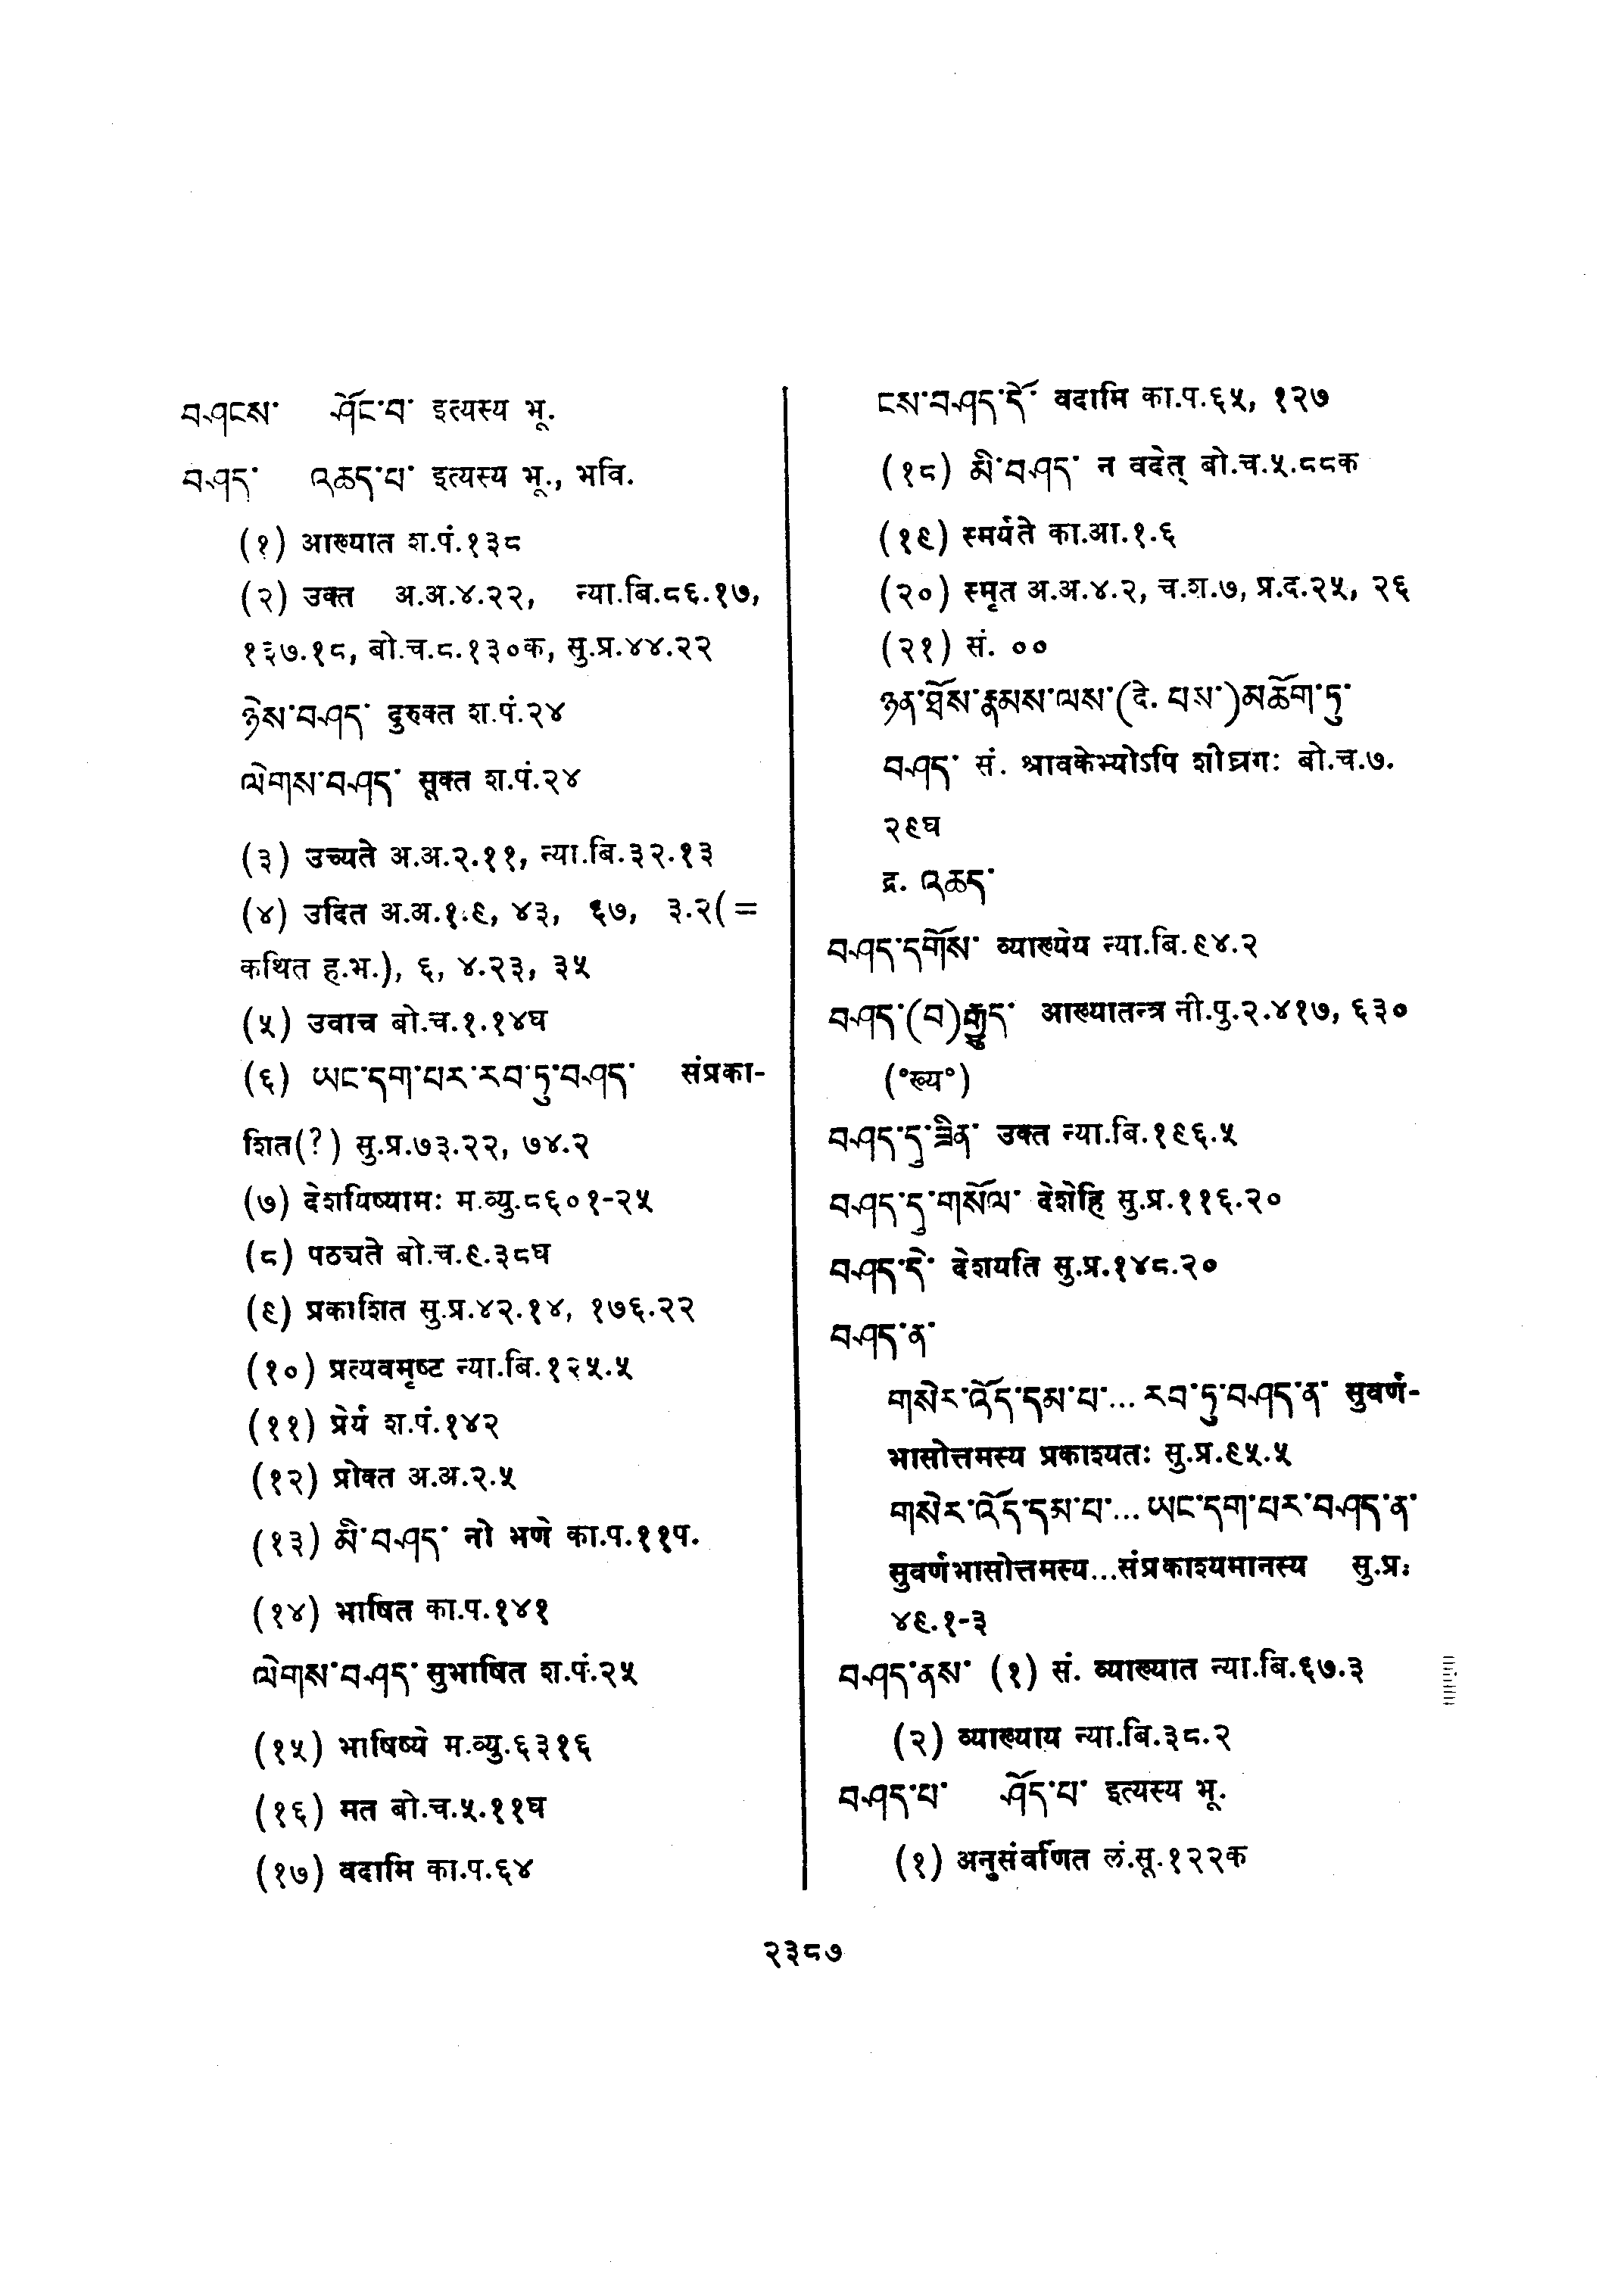 བཤངས་ ཤོང་བ་ इत्यस्य भू.
བཤད་ འཆད་པ་ इत्यस्य भू., भवि.
(१) आख्यात श.पं.१३८
(२) उक्त अ.अ.४.२२, न्या.बि.८६.१७,
१३७.१८, बो.च.८.१३०क, सु.प्र.४४.२२
ཉེས་བཤད་ दुरुक्त श.पं.२४
ལེགས་བཤད་ सूक्त श.पं.२४
(३) उच्यते अ.अ.२.११, न्या.बि.३२.१३
(४) उदित अ.अ.१.९, ४३, ६७, ३.२(=
कथित ह.भ.), ६, ४.२३, ३५
(५) उवाच बो.च.१.१४घ
(६) ཡང་དག་པར་རབ་ཏུ་བཤད་ संप्रका-
शित(?) सु.प्र.७३.२२, ७४.२
(७) देशयिष्यामः म.व्यु.८६०१-२५
(८) पठ्यते बो.च.९.३८घ
(९) प्रकाशित सु.प्र.४२.१४, १७६.२२
(१०) प्रत्यवमृष्ट न्या.बि.१२५.५
(११) प्रेर्य श.पं.१४२
(१२) प्रोक्त अ.अ.२.५
(१३) མི་བཤད་ नो भणे का.प.११प.
(१४) भाषित का.प.१४१
ལེགས་བཤད་ सुभाषित श.पं.२५
(१५) भाषिष्ये म.व्यु.६३१६
(१६) मत बो.च.५.११घ
(१७) वदामि का.प.६४
ངས་བཤད་དོ་ वदामि का.प.६५, १२७
(१८) མི་བཤད་ न वदेत् बो.च.५.८८क
(१९) स्मर्यते का.आ.१.६
(२०) स्मृत अ.अ.४.२, च.श.७, प्र.द.२५, २६
(२१) सं. ००
ཉན་ཐོས་རྣམས་ལས་(दे. པས་)མཆོག་ཏུ་
བཤད་ सं. श्रावकेभ्योऽपि शीघ्रगः बो.च.७.
२९घ
द्र. འཆད་
བཤད་དགོས་ व्याख्येय न्या.बि.९४.२
བཤད་(བ)རྒྱུད་ आख्यातन्त्र नी.पु.२.४१७, ६३०
(°ख्य°)
བཤད་དུ་ཟིན་ उक्त न्या.बि.१९६.५
བཤད་དུ་གསོལ་ देशेहि सु.प्र.११६.२०
བཤད་དེ་ देशयति सु.प्र.१४८.२०
བཤད་ན་
གསེར་འོད་དམ་པ་... རབ་ཏུ་བཤད་ན་ सुवर्ण-
भासोत्तमस्य प्रकाश्यतः सु.प्र.९५.५
གསེར་འོད་དམ་པ་... ཡང་དག་པར་བཤད་ན་
सुवर्णभासोत्तमस्य...संप्रकाश्यमानस्य सु.प्र.
४९.१-३
བཤད་ནས་ (१) सं. व्याख्यात न्या.बि.६७.३
(२) व्याख्याय न्या.बि.३८.२
བཤད་པ་ ཤོད་པ་ इत्यस्य भू.
(१) अनुसंवर्णित लं.सू.१२२क
२३८७